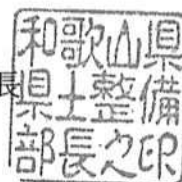 長
和歌山県
県土整備
部長之印